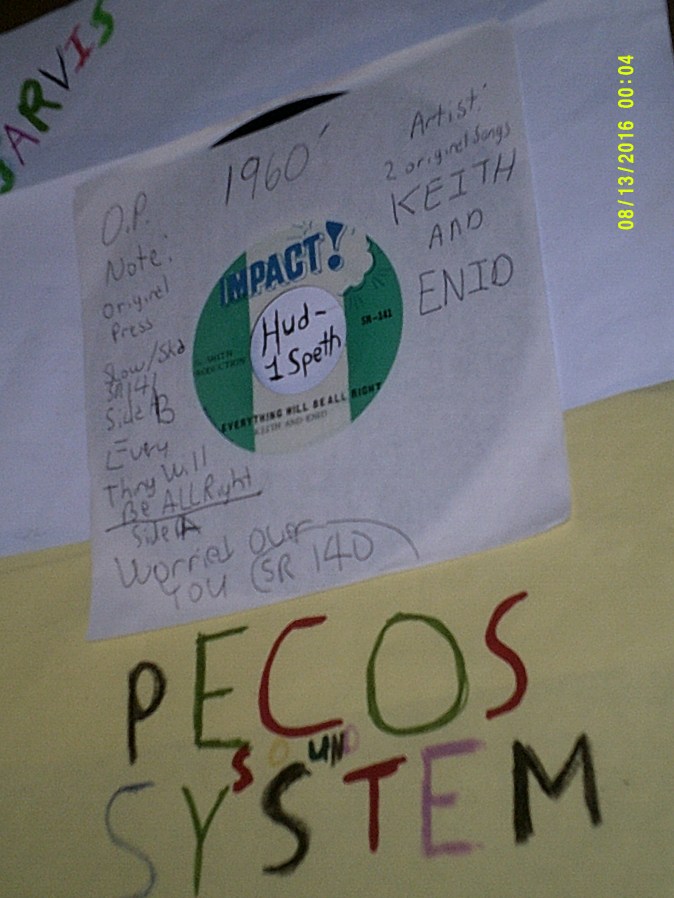 JARVIS
08/13/2016 00:04
1960'
O.P.
Note:
Original
Press
Slow/Ska
Side B
Every
Thing Will
Be ALL Right
Side A
Worried Over
You (SR 140)
Artist:
2 original songs
KEITH
AND
ENID
IMPACT!
Hud-
1 Speth
SR-141
EVERYTHING WILL BE ALL RIGHT
KEITH AND ENID
PECOS
SOUND
SYSTEM